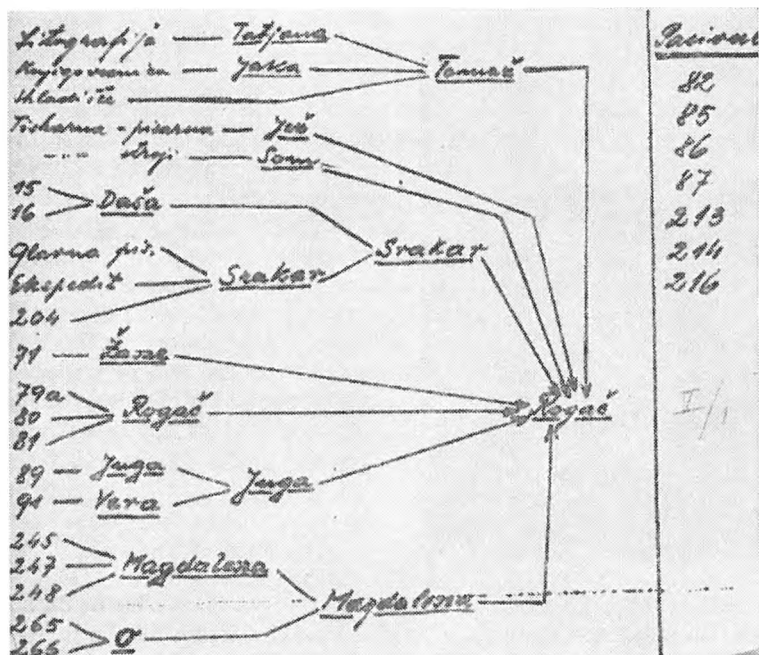 Litografija — Tatjana
Knjigoveznica — Jaka
Tomaž
Skladišče
Tiskarna - pisarna — Jež
—"— stroji — Som
15
16
Daša
Glavna pis.
Ekspedit
204
Srakar
Srakar
71 —
79a
80
81
Rogač
Rogač
89 — Juga
91 — Vera
Juga
245
247
248
Magdalena
265
266
O
Magdalena
82
85
86
87
213
214
216
II/1